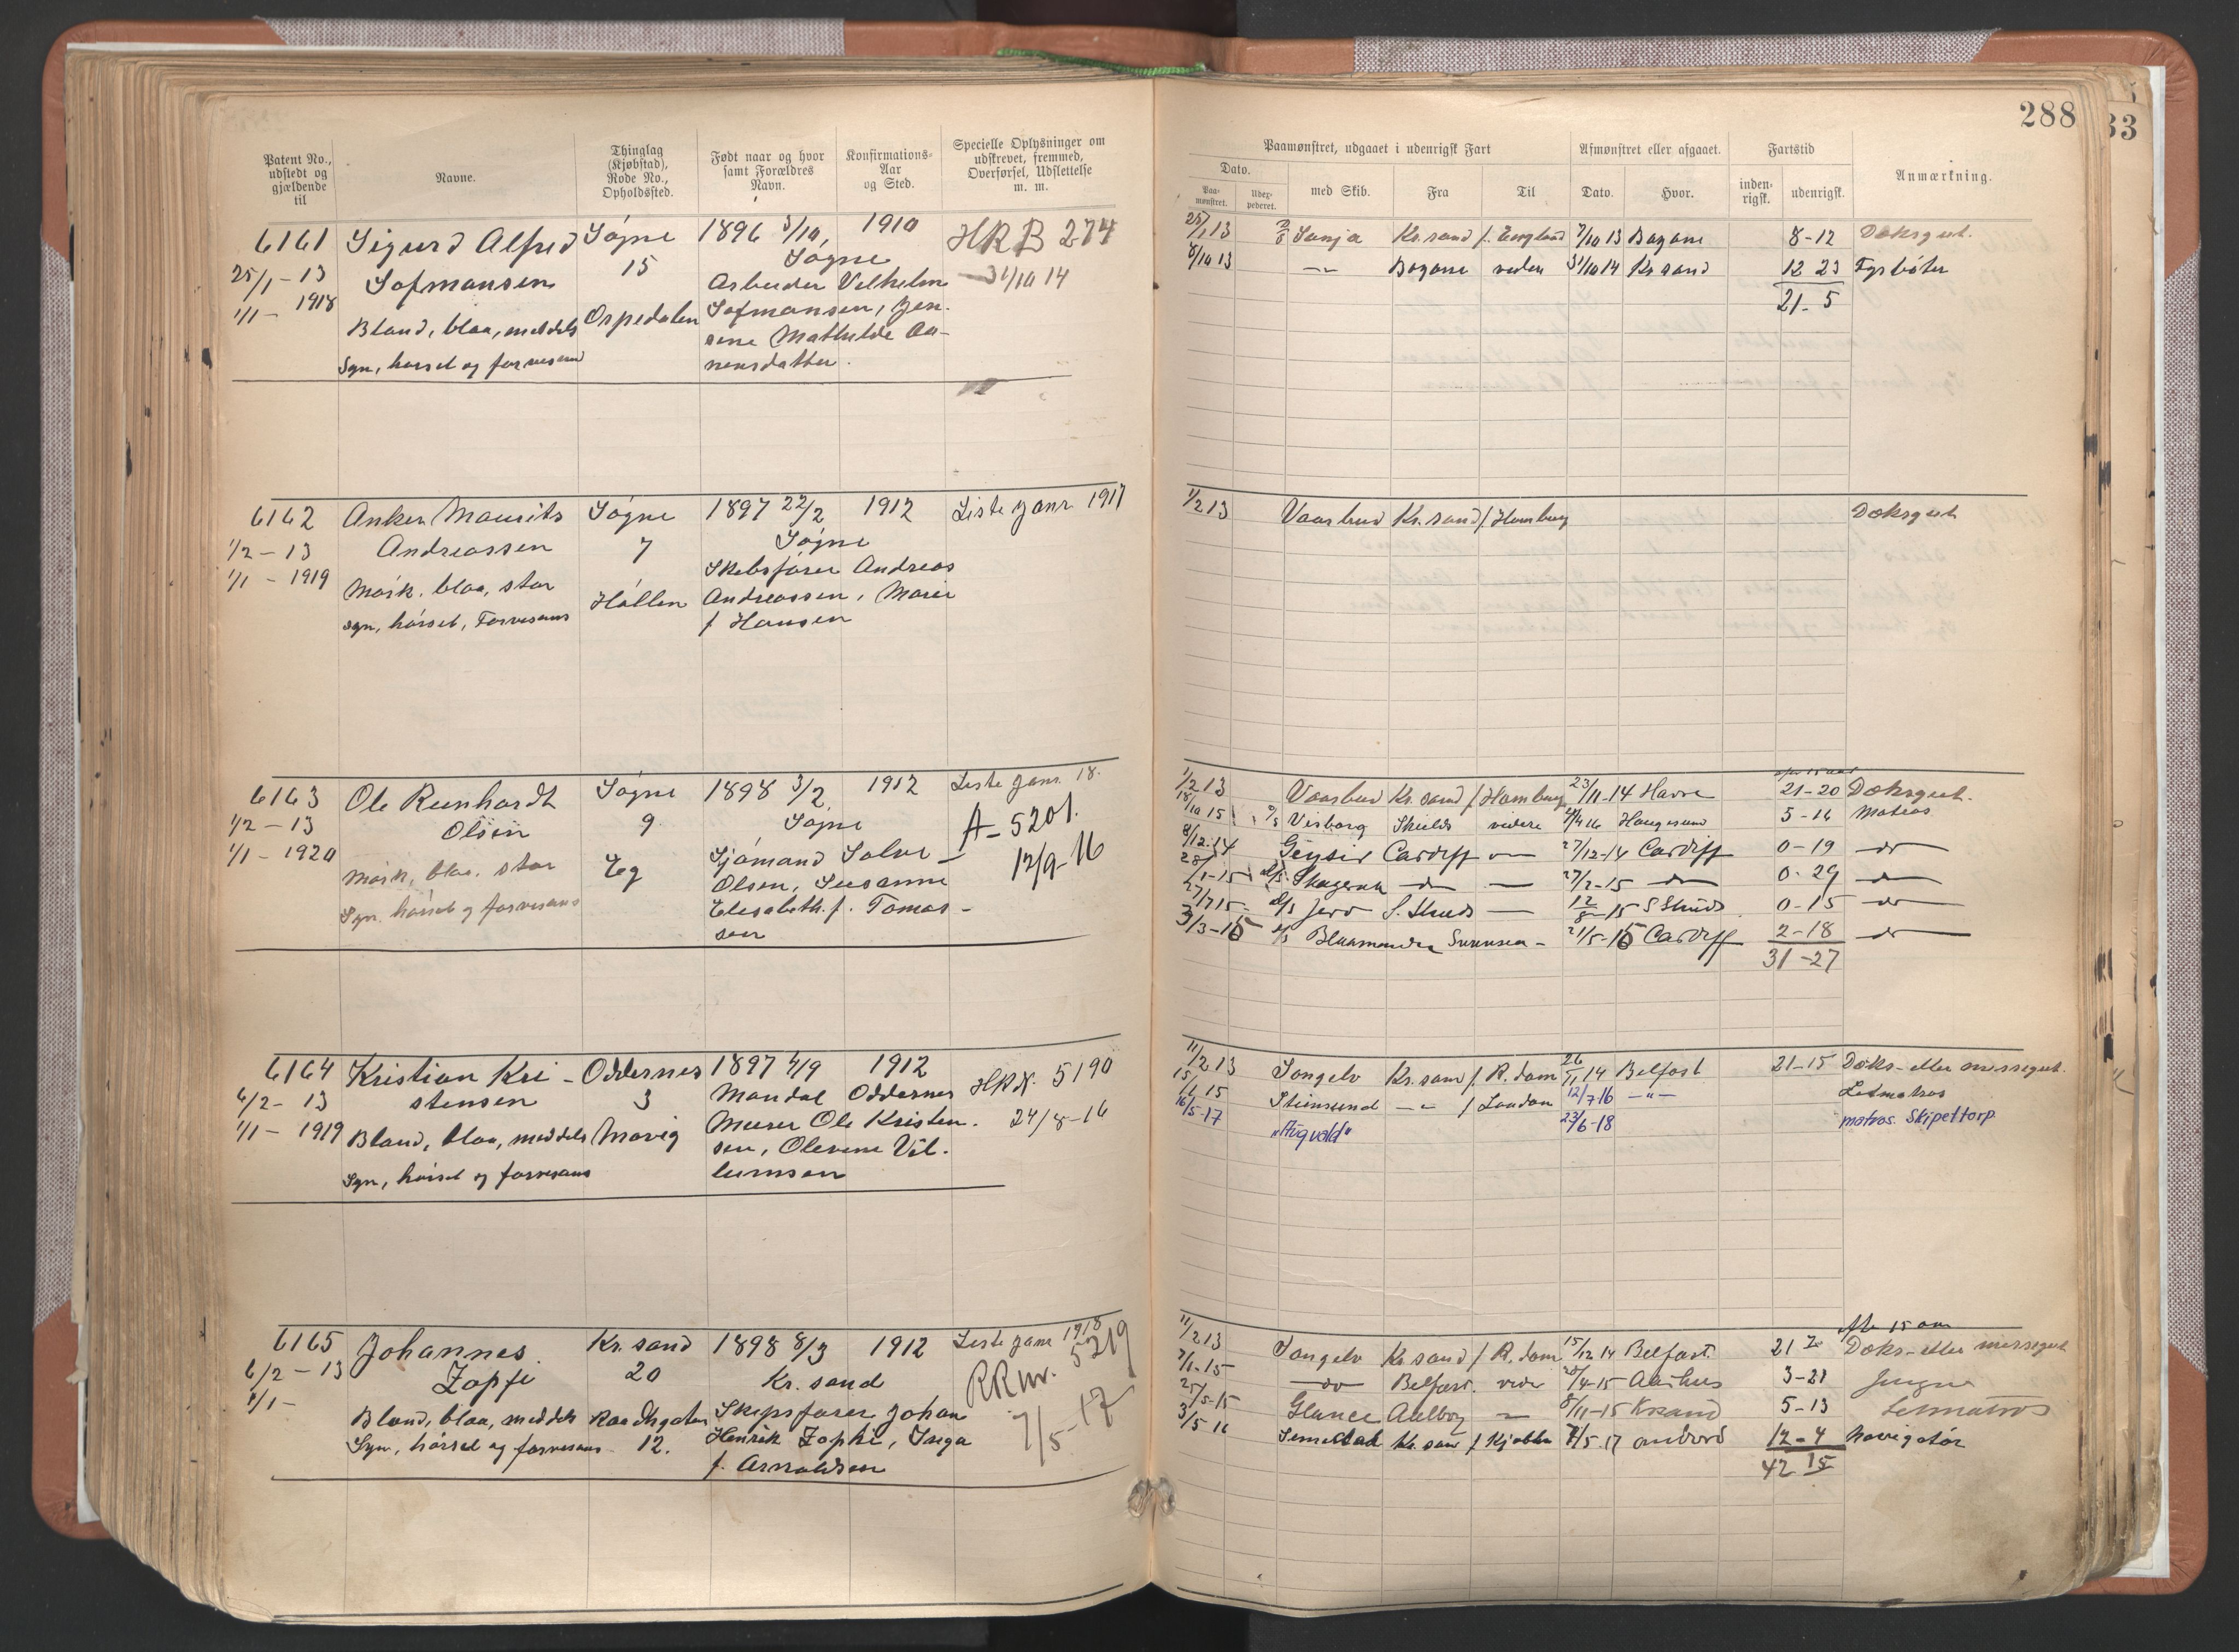 288
33
Patent No., udstedt og gjældende til
Navne.
Thinglag (Kjøbstad), Rode No., Opholdssted.
Født naar og hvor samt Forældres Navn.
Konfirmations-Aar og Sted.
Specielle Oplysninger om udskrevet, fremmed, Overførsel, Udslettelse m. m.
Paamønstret, udgaaet i udenrigsk Fart
Afmønstret eller afgaaet.
Fartstid
Anmærkning.
Dato.
Paa-mønstret.
Udex-pederet.
med Skib.
Fra
Til
Dato.
Hvor.
inden-rigsk.
udenrigsk.
6161 Sigurd Alfred Søgne 1896 3/10, 1910 HRB 274
25/1-13 Sofmansen 15 Søgne 31/10 14
1/1-1918 Arbeider Vilhelm
Blond, blaa, middels Ospedalen Sofmansen, Jen-
sine Mathilde Aa-
Syn, hørsel og farvesans nensdatter.
25/1 13 Sonja Kr.sand f. England 7/10 13 Bogane 8-12 Dæksgut.
8/10 13 Bogane videre 31/10 14 Kr sand 12 23 Fyrbøter
21-5
6162 Anker Mourits Søgne 1897 22/2 1912 Liste Janr 1917
1/2-13 Andreassen 7 Søgne
1/1-1919 Skibsfører Andreas
Mørk, blaa, stor Høllen Andreassen, Marie
syn, hørsel, Farvesans f Hansen
1/2 13 Vaarbud Kr.sand f Hamburg Dæksgut
6163 Ole Reinhardt Søgne 1898 3/2 1912 Liste Janr. 18.
1/2-13 Olsen 9 Søgne A-5201.
1/1-1920 Sjømand Salve 12/9-16
Mørk, blaa, stor Eg Olsen, Susanne
Syn, hørsel og farvesans Elisabeth f. Tomas-
sen
1/2 13 Vaarbud Kr.sand f Hamburg 23/11-14 Havre 21-20 Dæksgut.
18/10 15 Visborg Shields videre Haugesund 5-16 Matros
8/12-14 Geysir Cardiff 27/12-14 Cardiff 0-19 do
28/1-15 Skagerak do 27/2-15 do 0-29 do
27/7 15 S. Shields 12/8-15 S Shields 0-15 do
3/3-16 21/5-16 Cardiff 2-18 do
31-27
6164 Kristian Kri- Oddernes 1897 4/9 1912 HRN. 5190
6/2-13 stensen 3 Mandal Oddernes 24/8-16
1/1-1919 Murer Ole Kristen-
Blond, blaa, middels Møvig sen, Olevine Vil-
Syn, hørsel og farvesans lumsen
11/2 13 Songelv Kr.sand f. R.dam 26/11 14 Belfast 21-15 Dæks- eller messegut.
15/1 15 Steinsund f London 12/7 16 Letmatros
16/5-17 "Aigvald" 23/6-18 matros. Skipettorp
6165 Johannes Kr. sand 1898 8/3 1912 Liste Janr 1918
6/2-13 Zopfi 20 Kr. sand RR nr. 5219
1/1- 7/5-17
Blond, blaa, middels Raadhgaten Skipsfører Johan
Syn, hørsel og farvesans 12. Henrik Zopfi, Inga
f. Arnoldsen
efter 15 aar
11/2 13 Songelv Kr sand f R.dam 15/12 14 Belfast. 21 Dæks- eller messegut
7/1-15 do Belfast. videre Aarhus 3-21 Jungm
25/5-15 Glance Aalborg 8/11-15 Krsand 5-13 Letmatros
3/5 16 Kr. sand 7/5 17 ombord 12-4 Navigatør
42 15